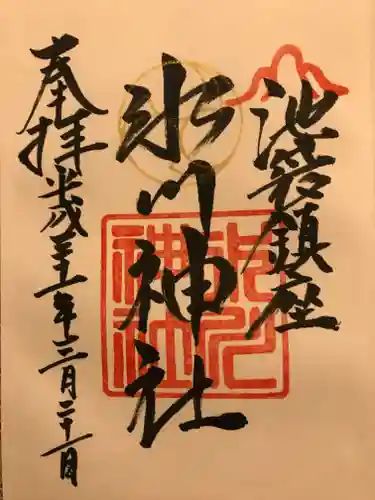 池袋鎮座
氷川神社
氷川神社
奉拝 平成三十一年三月二十一日